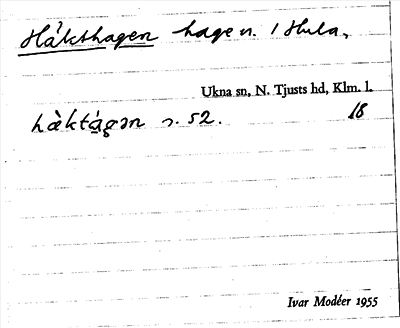 Håkthagen hage n. 1 Hula,
Ukna sn, N. Tjusts hd, Klm. l.
hὰktágən s. 52. 18
Ivar Modéer 1955